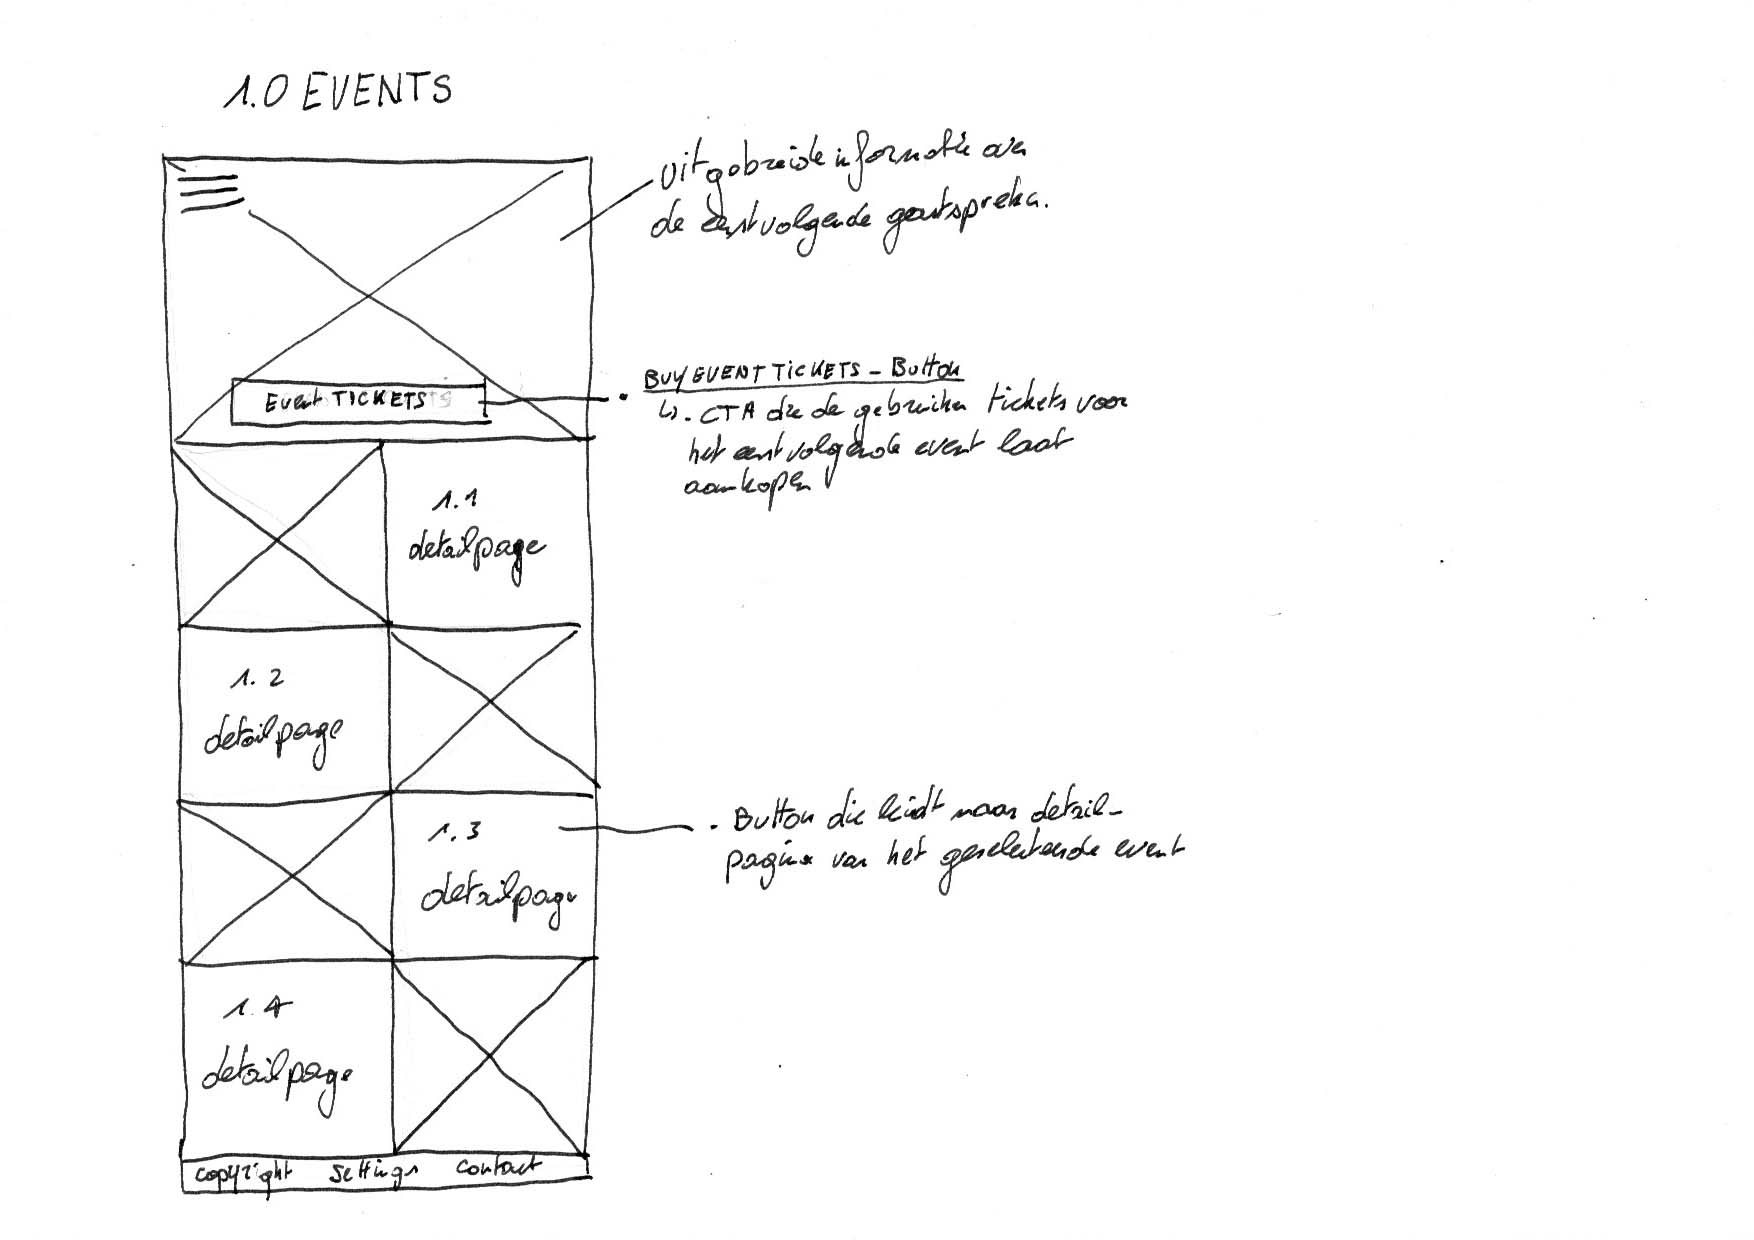 1.0 EVENTS
uitgebreide informatie over
de eerstvolgende gastspreker.
Event TICKETS
BUY EVENT TICKETS - Button
↳. CTA die de gebruiker tickets voor
het eerstvolgende event laat
aankopen
1.1
detailpage
1.2
detailpage
1.3
detailpage
. Button die leidt naar detail-
pagina van het geselecteerde event
1.4
detailpage
copyright settings contact